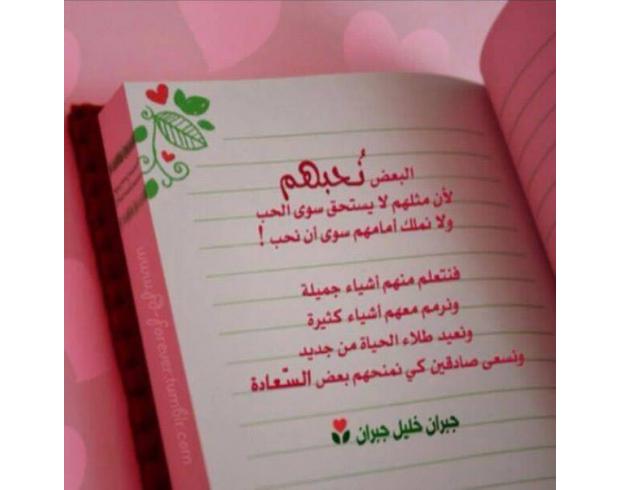 البعض نُحبهم
لأن مثلهم لا يستحق سوى الحب
ولا نملك أمامهم سوى أن نحب !
فنتعلم منهم أشياء جميلة
ونرمم معهم أشياء كثيرة
ونعيد طلاء الحياة من جديد
ونسعى صادقين كي نمنحهم بعض السّعادة
جبران خليل جبران